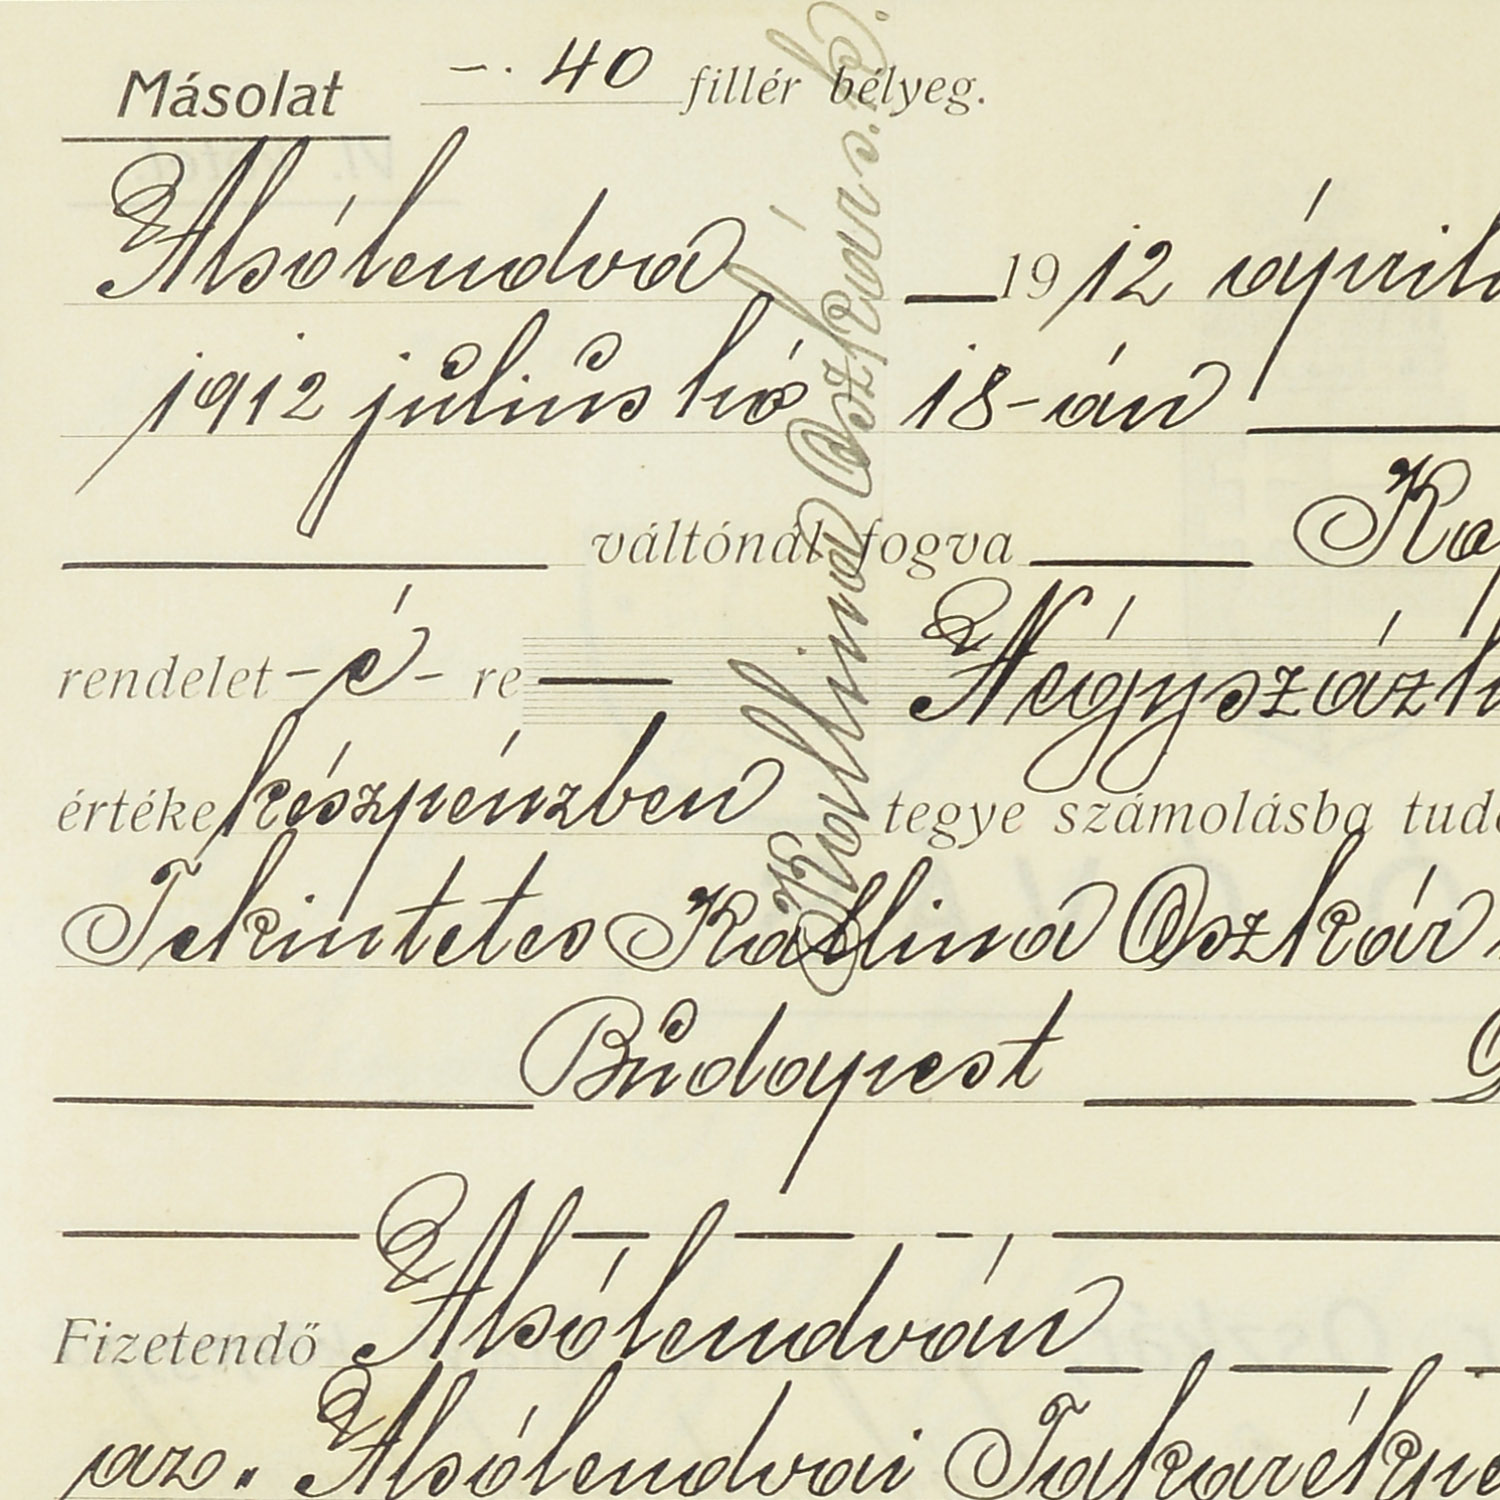 Másolat –. 40 fillér bélyeg.
Alsólendva 1912 ápril
1912 július hó 18-án
váltónál fogva
rendelet – é – re Négyszáz
értéke készpénzben tegye számolásba
Tekintetes Kallina Oszkár
Budapest
Fizetendő Alsólendván
az. Alsólendvai Takarékpé
Kallina Oszkár s.